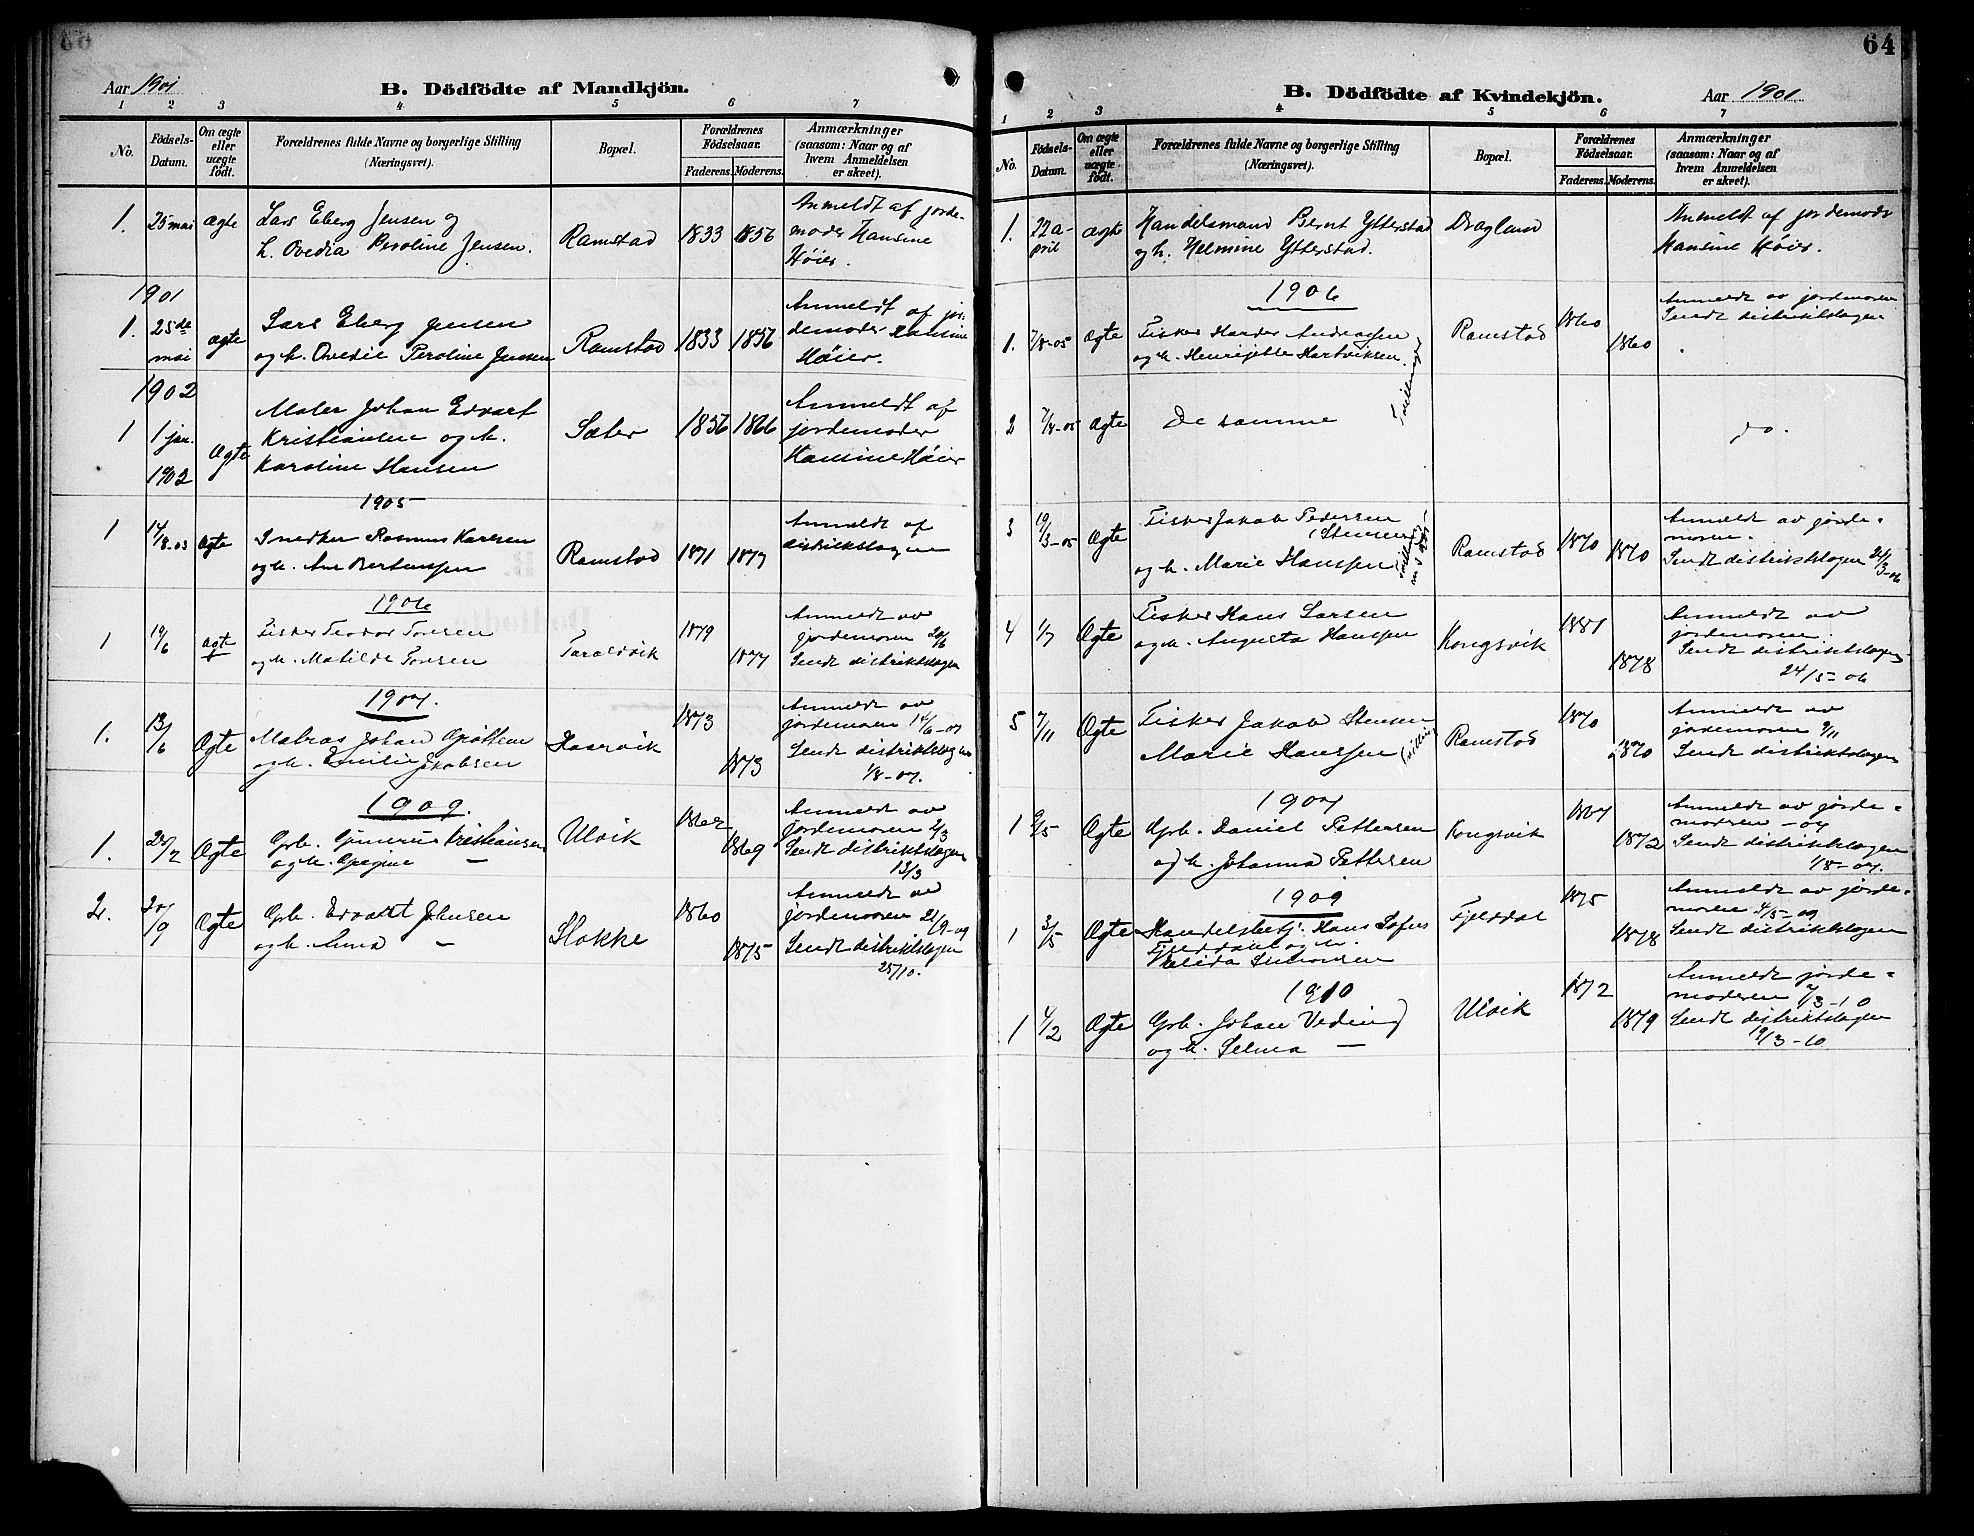 Aar 1901
B. Dödfödte af Mandkjön.
1 2 3 4 5 6 7
No.
Födsels-Datum.
Om ægte eller uægte födt.
Forældrenes fulde Navne og borgerlige Stilling (Næringsvei).
Bopæl.
Forældrenes Födselsaar.
Faderens. Moderens.
Anmærkninger (saasom: Naar og af hvem Anmeldelsen er skeet).
1. 25 mai ægte Lars Eberg Jensen og
h. Ovedia Peroline Jensen.
Ramstad 1833 1856
Anmeldt af jorde-
moder Hansine
Höier.
1901
1. 25de mai ægte Lars Eberg Jensen
og h. Ovedie Peroline Jensen
Ramstad 1833 1856
Anmeldt af jor-
demoder Hansine
Høier.
1902
1 1 jan. 1902 Ægte
Maler Johan Edvart
Kristiansen og h.
Karoline Hansen
Sæter 1856 1866
Anmeldt af
jordemoder
Hansine Høier
1905
1 14/8-03 Ægte Snedker Rasmus Karlsen
og h. Ane Bertenssen
Ramstad 1871 1877
Anmeldt af
distriktslægen
1906
1 19/6 Ægte Fisker Teodor Toresen
og h. Matilde Toresen
Taraldvik 1879 1877
Anmeldt av
jordemoren 20/6
Sendt distriktslægen
1907.
1. 13/6 Ægte Matros Johan
og h. Emilie Jakobsen
1873 1873
Anmeldt av
jordemoren 14/6-07
Sendt distriktslægen
1/8-07.
1909.
1. Ægte Grb. Gunerius Kristiansen
og h. —
Ulvik 1862 1869
Anmeldt av
jordemoren 2/3
Sendt distriktslægen
13/3
2. 20/9 Ægte Grb. Edvart Johnsen
og h. Anna —
Slakke 1860 1875
Anmeldt av
jordemoren 21/9-09
Sendt distriktslægen
25/10.
64
B. Dödfödte af Kvindekjön.
Aar 1901
1 2 3 4 5 6 7
No.
Födsels-Datum.
Om ægte eller uægte födt.
Forældrenes fulde Navne og borgerlige Stilling (Næringsvei).
Bopæl.
Forældrenes Födselsaar.
Faderens. Moderens.
Anmærkninger (saasom: Naar og af hvem Anmeldelsen er skeet).
1. 22 a-
pril ægte Handelsmand Bernt Ytterstad
og h. Helmine Ytterstad.
Dragland
Anmeldt af jordemoder
Hansine Höier.
1906
1. 7/8-05 Ægte Fisker Hardor Andreassen
og h. Henrijette Hartviksen
Ramstad 1860 1860
Anmeldt av jordemoren
Sendt distriktslægen
2 7/8-05 Ægte De samme
Tvillinger
do.
3 19/3-05 Ægte Fisker Jakob Pedersen
(Stensen)
og h. Marie Hanssen
Ramstad 1870 1870
Anmeldt av jorde-
moren.
Sendt distriktslægen 24/3-06
4 1/7 Ægte Fisker Hans Larsen
og h. Augusta Hanssen
Kongsvik 1881 1878
Anmeldt av
jordemoren.
Sendt distriktslægen
24/5-06
5 7/11 Ægte Fisker Jakob Stensen
Marie Hanssen
(tvilling)
Ramstad 1870 1870
Anmeldt av
jordemoren 9/11
Sendt distriktslægen
1907
1 9/5 Ægte Grb. Daniel Pettersen
og h. Johanna Pettersen
Kongsvik 1867 1872
Anmeldt av jorde-
moren -07
Sendt distriktslægen
1/8-07.
1909
1 3/5 Ægte Handelsbetj. Hans Lofus
Fjelddal og h.
Valida Simonsen
Fjelddal 1875 1878
Anmeldt av jorde-
moren 4/5-09
Sendt distriktslægen
1910
1 4/2 Ægte Grb. Johan Veding
og h. Selma —
Ulvik 1872 1879
Anmeldt jorde-
moderen 7/3-10
Sendt distriktslægen
19/3-10